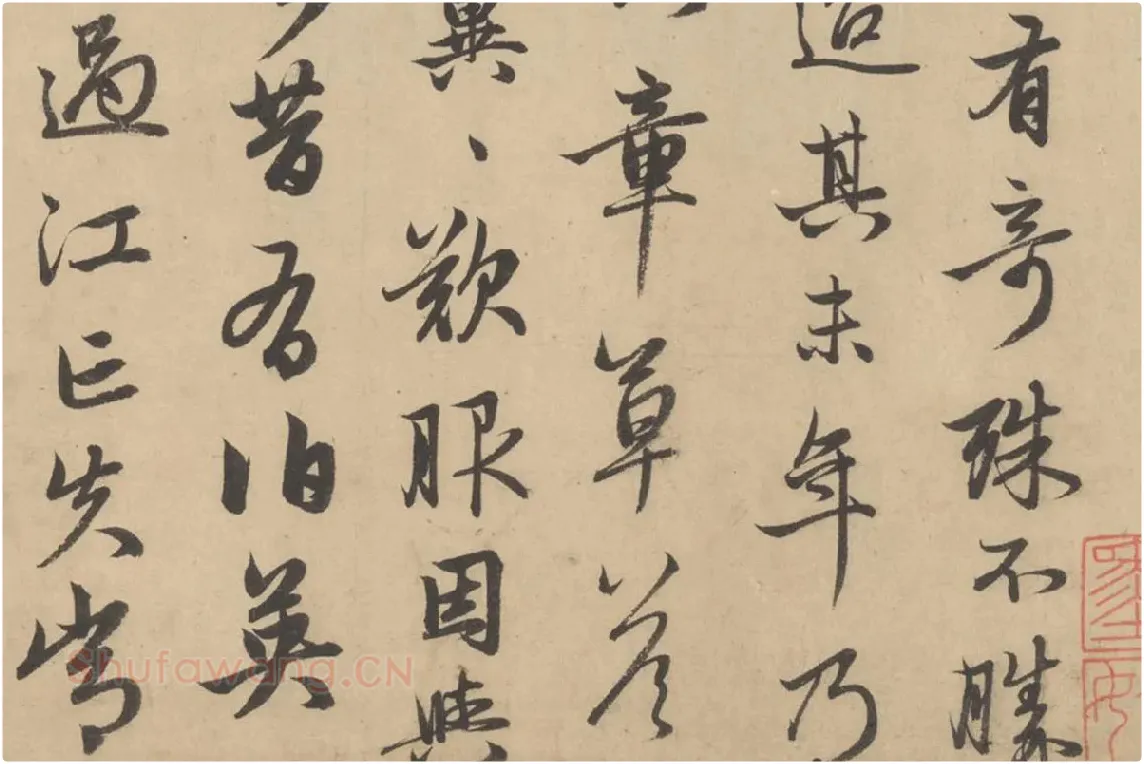 有奇殊不勝
迨其末年乃
章草答
翼、歎服因與
昔有伯英
過江亡失常
Shufawang.CN